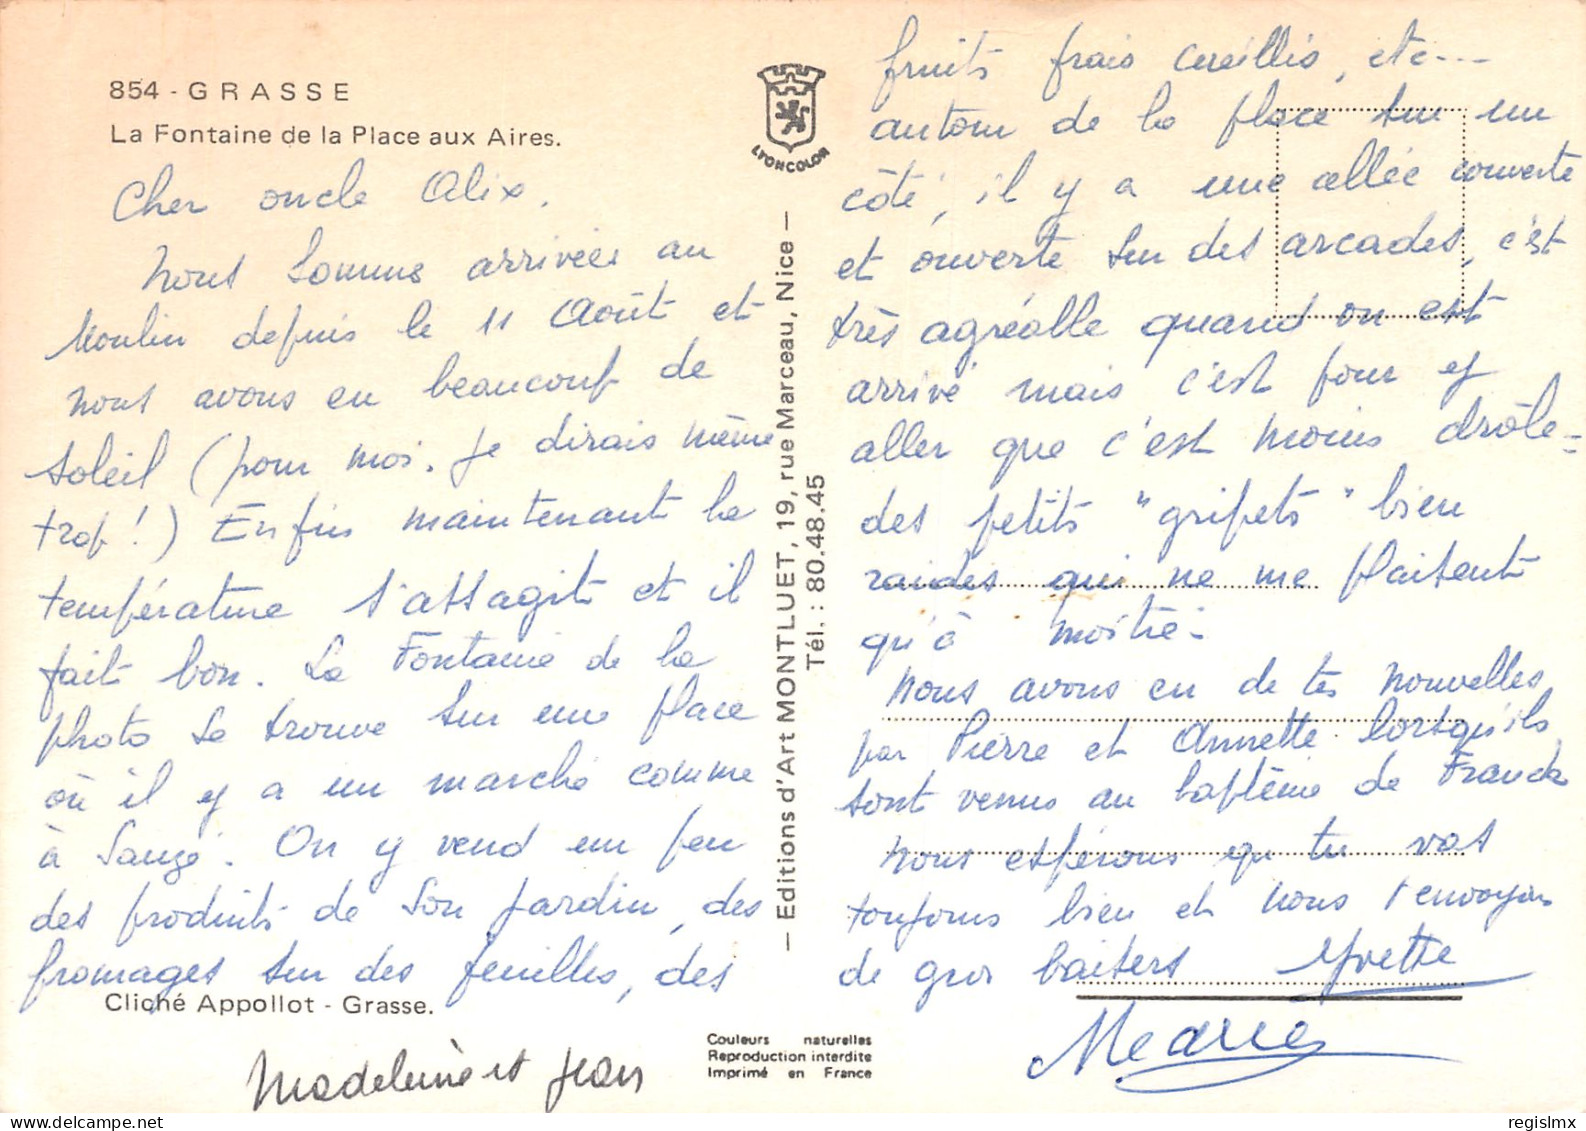 854 - GRASSE
La Fontaine de la Place aux Aires.
Cher oncle Alix,
Nous sommes arrivées au
Moulin depuis le 11 Août et
nous avons eu beaucoup de
soleil (pour moi, je dirais même
trop !) Enfin maintenant la
température s'assagit et il
fait bon. La Fontaine de la
photo se trouve sur une place
où il y a un marché comme
à Saugé. On y vend un peu
des produits de son jardin, des
fromages sur des feuilles, des
Cliché Appollot - Grasse.
Madeleine et Jean
LYONCOLOR
— Editions d'Art MONTLUET, 19, rue Marceau, Nice —
Tél. : 80.48.45
Couleurs naturelles
Reproduction interdite
Imprimé en France
fruits frais cueillis, etc...
autour de la place sur un
côté, il y a une allée couverte
et ouverte sur des arcades, c'est
très agréable quand on est
arrivé mais c'est pour y
aller que c'est moins drôle -
des petits "gripets" bien
raides qui ne me plaisent
qu'à moitié -
Nous avons eu de tes nouvelles
par Pierre et Annette lorsqu'ils
sont venus au baptême de Franck
Nous espérons que tu vas
toujours bien et nous t'envoyons
de gros baisers Yvette
regislmx